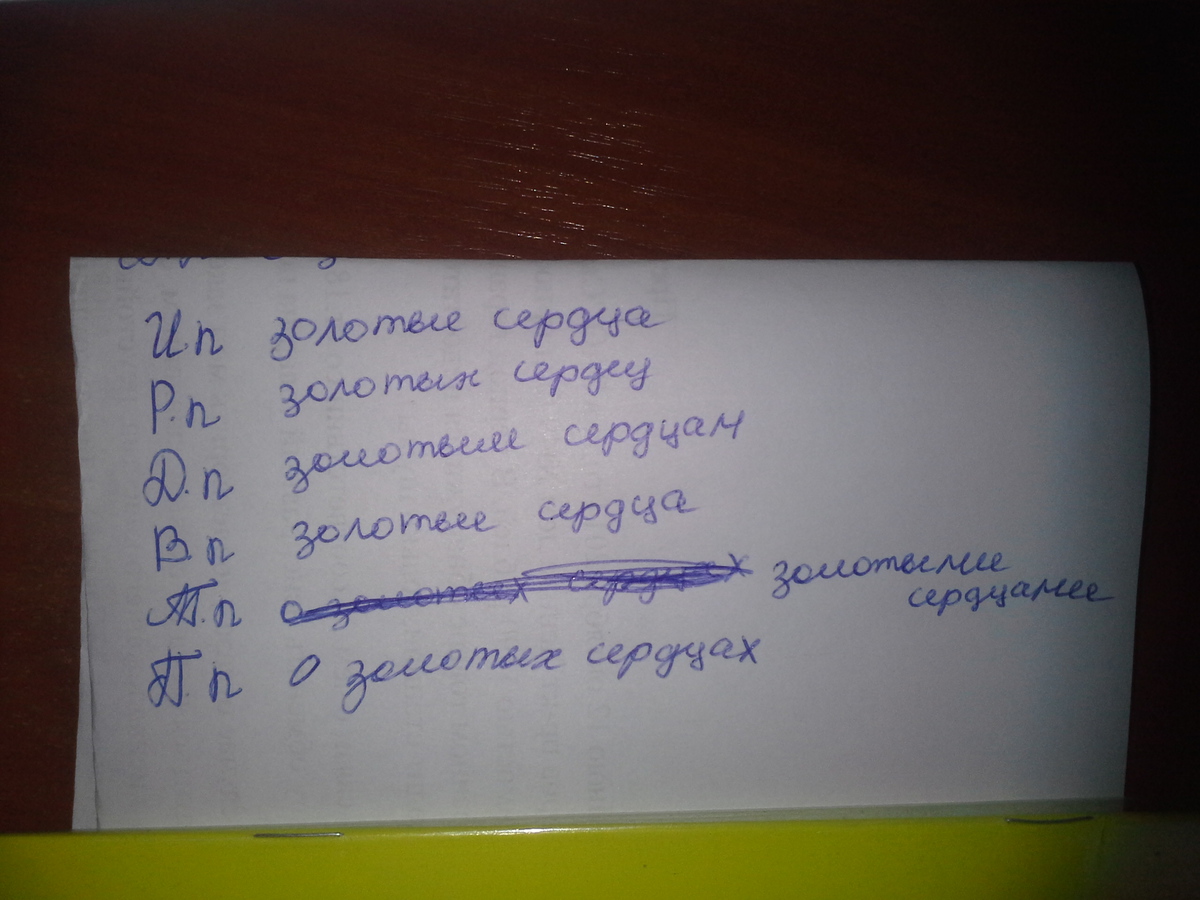 И п золотые сердца
Р.п золотых сердец
Д.п золотым сердцам
В.п золотые сердца
Т.п о золотых сердцах золотыми
сердцами
П.п О золотых сердцах